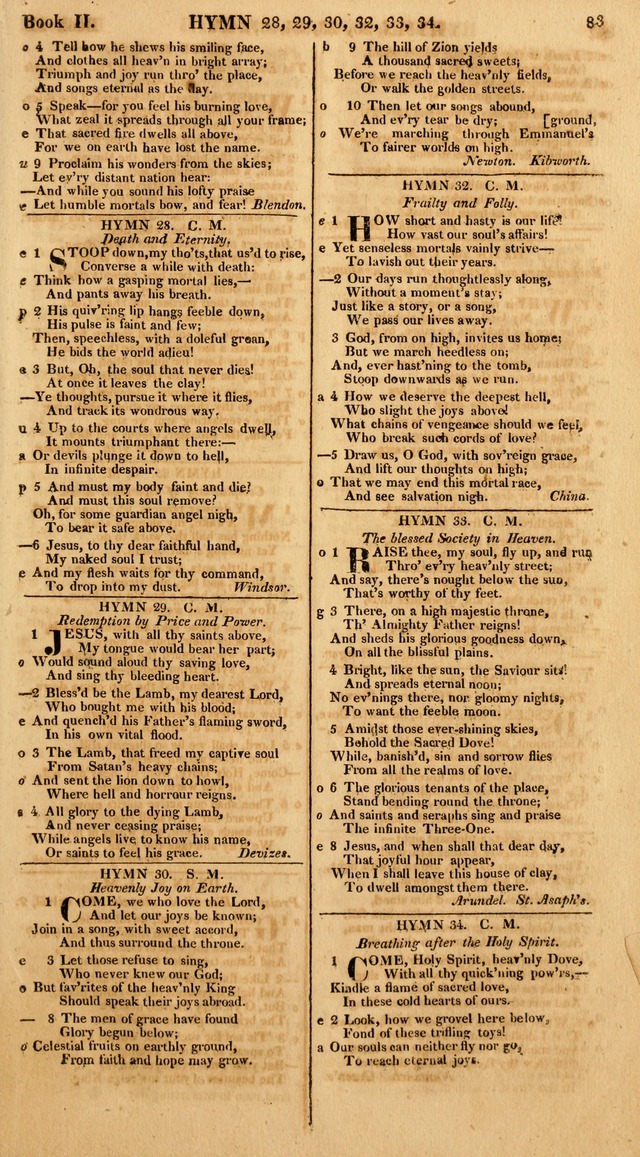 Book II. HYMN 28, 29, 30, 32, 33, 34. 83
o 4 Tell how he shews his smiling face,
And clothes all heav'n in bright array;
Triumph and joy run thro' the place,
And songs eternal as the day.
o 5 Speak—for you feel his burning love,
What zeal it spreads through all your frame;
e That sacred fire dwells all above,
For we on earth have lost the name.
u 9 Proclaim his wonders from the skies;
Let ev'ry distant nation hear:
—And while you sound his lofty praise
e Let humble mortals bow, and fear! Blendon.
HYMN 28. C. M.
Depth and Eternity.
e 1 STOOP down, my tho'ts, that us'd to rise,
Converse a while with death:
e Think how a gasping mortal lies,—
And pants away his breath.
p 2 His quiv'ring lip hangs feeble down,
His pulse is faint and few;
Then, speechless, with a doleful groan,
He bids the world adieu!
a 3 But, Oh, the soul that never dies!
At once it leaves the clay!
—Ye thoughts, pursue it where it flies,
And track its wondrous way.
u 4 Up to the courts where angels dwell,
It mounts triumphant there:—
a Or devils plunge it down to hell,
In infinite despair.
p 5 And must my body faint and die?
And must this soul remove?
Oh, for some guardian angel nigh,
To bear it safe above.
—6 Jesus, to thy dear faithful hand,
My naked soul I trust;
e And my flesh waits for thy command,
To drop into my dust. Windsor.
HYMN 29. C. M.
Redemption by Price and Power.
1 JESUS, with all thy saints above,
My tongue would bear her part;
o Would sound aloud thy saving love,
And sing thy bleeding heart.
—2 Bless'd be the Lamb, my dearest Lord,
Who bought me with his blood;
e And quench'd his Father's flaming sword,
In his own vital flood.
o 3 The Lamb, that freed my captive soul
From Satan's heavy chains;
o And sent the lion down to howl,
Where hell and horrour reigns.
s 4 All glory to the dying Lamb,
And never ceasing praise;
While angels live to know his name,
Or saints to feel his grace. Devizes.
HYMN 30. S. M.
Heavenly Joy on Earth.
1 COME, we who love the Lord,
And let our joys be known;
Join in a song, with sweet accord,
And thus surround the throne.
e 3 Let those refuse to sing,
Who never knew our God;
o But fav'rites of the heav'nly King
Should speak their joys abroad.
— 8 The men of grace have found
Glory begun below;
o Celestial fruits on earthly ground,
From faith and hope may grow.
b 9 The hill of Zion yields
A thousand sacred sweets;
Before we reach the heav'nly fields,
Or walk the golden streets.
o 10 Then let our songs abound,
And ev'ry tear be dry; [ground,
o We're marching through Emmanuel's
To fairer worlds on high.
Newton. Kibworth.
HYMN 32. C. M.
Frailty and Folly.
e 1 HOW short and hasty is our life!
How vast our soul's affairs!
e Yet senseless mortals vainly strive—
To lavish out their years.
—2 Our days run thoughtlessly along,
Without a moment's stay;
Just like a story, or a song,
We pass our lives away.
3 God, from on high, invites us home;
But we march heedless on;
And, ever hast'ning to the tomb,
Stoop downwards as we run.
a 4 How we deserve the deepest hell,
Who slight the joys above!
What chains of vengeance should we feel,
Who break such cords of love?
—5 Draw us, O God, with sov'reign grace,
And lift our thoughts on high;
o That we may end this mortal race,
And see salvation nigh. China.
HYMN 33. C. M.
The blessed Society in Heaven.
o 1 RAISE thee, my soul, fly up, and run
Thro' ev'ry heav'nly street;
And say, there's nought below the sun,
That's worthy of thy feet.
g 3 There, on a high majestic throne,
Th' Almighty Father reigns!
And sheds his glorious goodness down,
On all the blissful plains.
4 Bright, like the sun, the Saviour sits!
And spreads eternal noon;
No ev'nings there, nor gloomy nights,
To want the feeble moon.
5 Amidst those ever-shining skies,
Behold the Sacred Dove!
While, banish'd, sin and sorrow flies
From all the realms of love.
o 6 The glorious tenants of the place,
Stand bending round the throne;
o And saints and seraphs sing and praise
The infinite Three-One.
e 8 Jesus, and when shall that dear day,
That joyful hour appear,
When I shall leave this house of clay,
To dwell amongst them there.
Arundel. St. Asaph's.
HYMN 34. C. M.
Breathing after the Holy Spirit.
1 COME, Holy Spirit, heav'nly Dove,
With all thy quick'ning pow'rs,—
Kindle a flame of sacred love,
In these cold hearts of ours.
e 2 Look, how we grovel here below,
Fond of these trifling toys!
a Our souls can neither fly nor go,
To reach eternal joys.